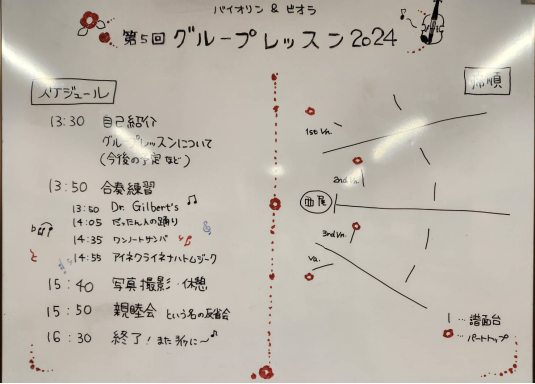 バイオリン & ビオラ
第5回 グループレッスン 2024
スケジュール
13:30 自己紹介
グループレッスンについて
(今後の予定など)
13:50 合奏練習
13:50 Dr. Gilbert's
14:05 だったん人の踊り
14:35 ワンノートサンバ
14:55 アイネクライネナハトムジーク
15:40 写真撮影・休憩
15:50 親睦会 という名の反省会
16:30 終了! また
席順
1st Vn.
2nd Vn.
3rd Vn.
Va.
| … 譜面台
… パートトップ